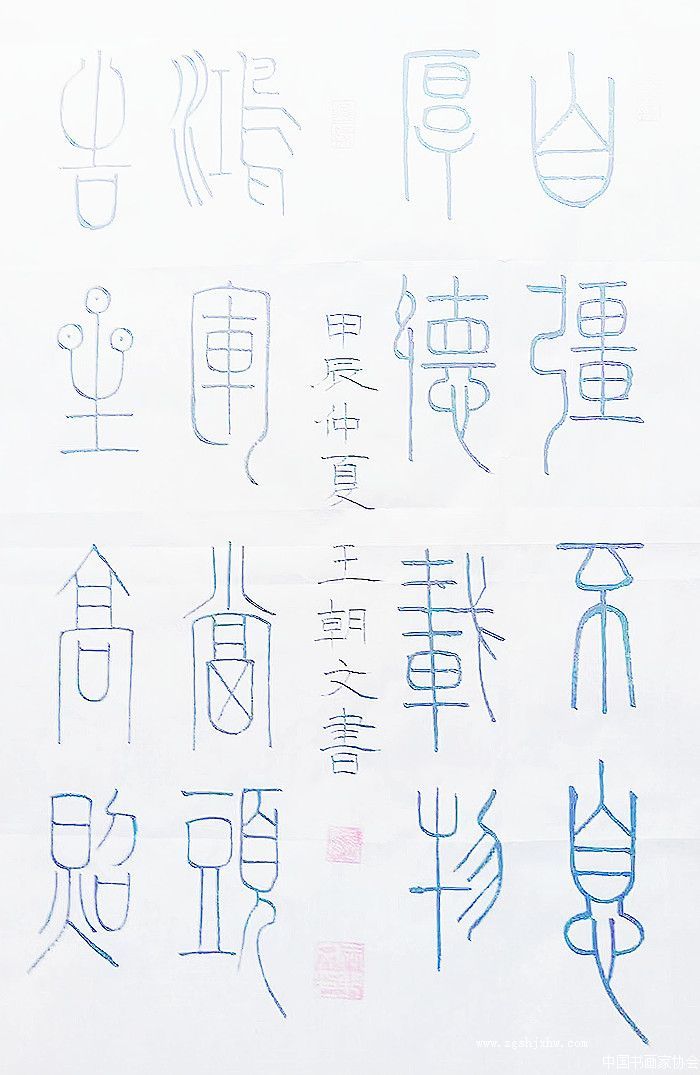 自彊不息
厚德載物
甲辰仲夏 王朝文書
鴻運當頭
吉星高照
www.zgshjxhw.com
中国书画家协会